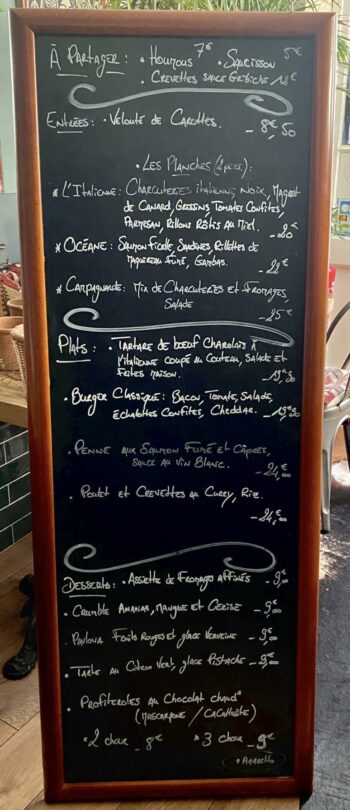 À Partager : • Houmous 7€ • Saucisson 5€
• Crevettes sauce Gribiche 12€
Entrées : • Velouté de Carottes. - 8€,50
• Les Planches (2 pers) :
* L'Italienne : Charcuteries italienne, Noix, Magret
de Canard, Gressins, Tomates Confites,
Parmesan, Rillons Rôtis au Miel. - 20€
* Océane : Saumon Ficelle Sardines, Rillettes de
Maquereau Fumé, Gambas. - 22€
* Campagnarde : Mix de Charcuteries et Fromages,
Salade - 25€
Plats : • Tartare de bœuf Charolais à
l'italienne coupé au Couteau, Salade et
Frites maison. - 19€90
• Burger Classique : Bacon, Tomate, Salade,
Échalottes Confites, Cheddar. - 19€90
• Penne aux Saumon Fumé et Câpres,
sauce au Vin Blanc. - 24€,00
• Poulet et Crevettes au Curry, Riz.
- 24€,00
Desserts : • Assiette de Fromages affinés - 9€,00
• Crumble Ananas, Mangue et Cerise - 9€,00
Pavlova Fruits Rouges et glace Verveine - 9€,00
• Tarte au Citron Vert, glace Pistache - 9€,00
• Profiteroles au Chocolat chaud*
(Mascarpone / Cacahuète)
* 2 choux - 8€ * 3 choux - 9€
* Amaretto